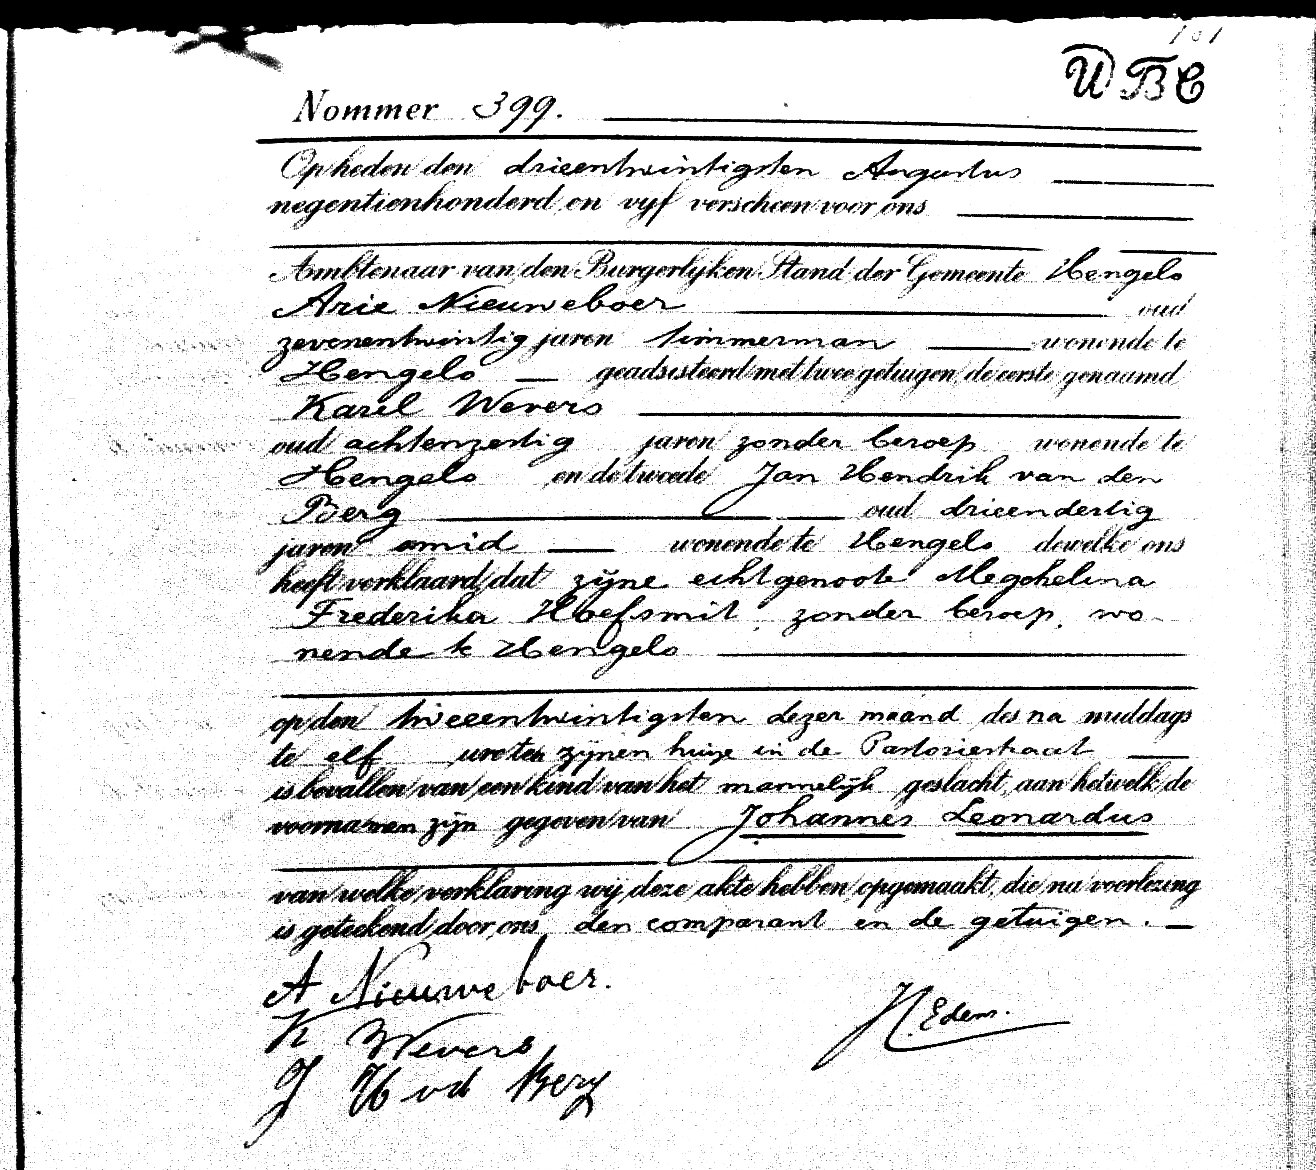 101
WBC
Nommer 399.
Op heden den drieentwintigsten Augustus
negentienhonderd en vijf verscheen voor ons
Ambtenaar van den Burgerlijken Stand der Gemeente Hengelo
Arie Nieuweboer oud
zevenentwintig jaren timmerman wonende te
Hengelo geadsisteerd met twee getuigen, de eerste genaamd
Karel Wevers
oud achtenzestig jaren zonder beroep wonende te
Hengelo en de tweede Jan Hendrik van den
Berg oud drieendertig
jaren smid wonende te Hengelo dewelke ons
heeft verklaard, dat zijne echtgenoote Megchelina
Frederika Hoefsmit, zonder beroep, wo-
nende te Hengelo
op den tweeentwintigsten dezer maand des na middags
te elf ure ten zijnen huize in de Pastoriestraat
is bevallen van een kind van het mannelijk geslacht, aan hetwelk de
voornamen zijn gegeven van Johannes Leonardus
van welke verklaring wij deze akte hebben opgemaakt, die na voorlezing
is geteekend door ons, den comparant en de getuigen.
A Nieuweboer.
K Wevers
J H vd Berg